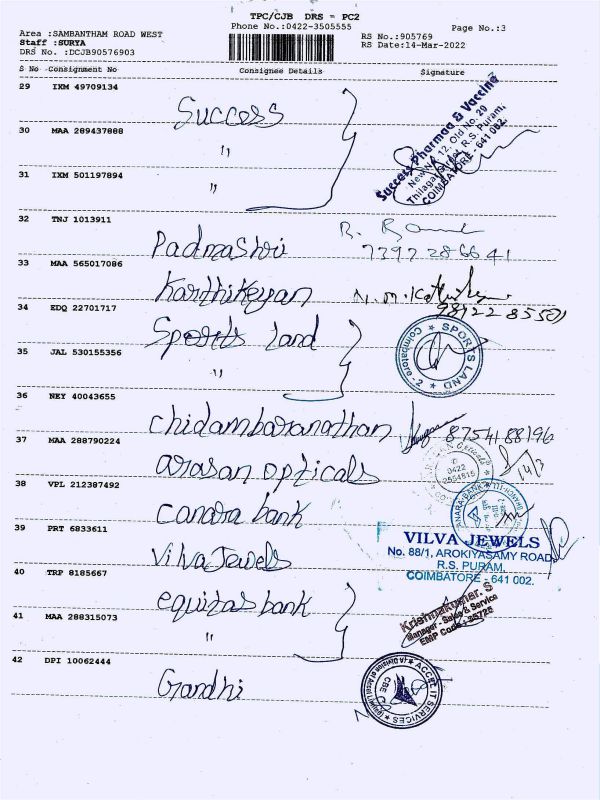 TPC/CJB DRS = PC2
Phone No.:0422-3505555
Page No.:3
Area :SAMBANTHAM ROAD WEST
Staff :SURYA
DRS No. :DCJB90576903
RS No.:905769
RS Date:14-Mar-2022
S No Consignment No Consignee Details Signature
29 IXM 49709134
Success
Success Pharmaa & Vaccine
New No. 12, Old No. 29
Thilagar Street, R.S. Puram,
COIMBATORE - 641 002.
30 MAA 289437888
"
31 IXM 501197894
"
32 TNJ 1013911
Padmashri
7397286641
33 MAA 565017086
Karthikeyan
34 EDQ 22701717
Sports land
SPORTS LAND
Coimbatore-2
35 JAL 530155356
"
36 NEY 40043655
Chidambaranathan
8754188196
37 MAA 288790224
arasan opticals
0422
2554815
14/3
38 VPL 212387492
Canara bank
39 PRT 6833611
Vilva Jewels
VILVA JEWELS
No. 88/1, AROKIYASAMY ROAD,
R.S. PURAM,
COIMBATORE - 641 002.
40 TRP 8185667
equitas bank
Krishnakumar. S
Manager - Sales & Service
EMP Code:
41 MAA 288315073
"
42 DPI 10062444
Gandhi
ACCEL IT SERVICES
CBE